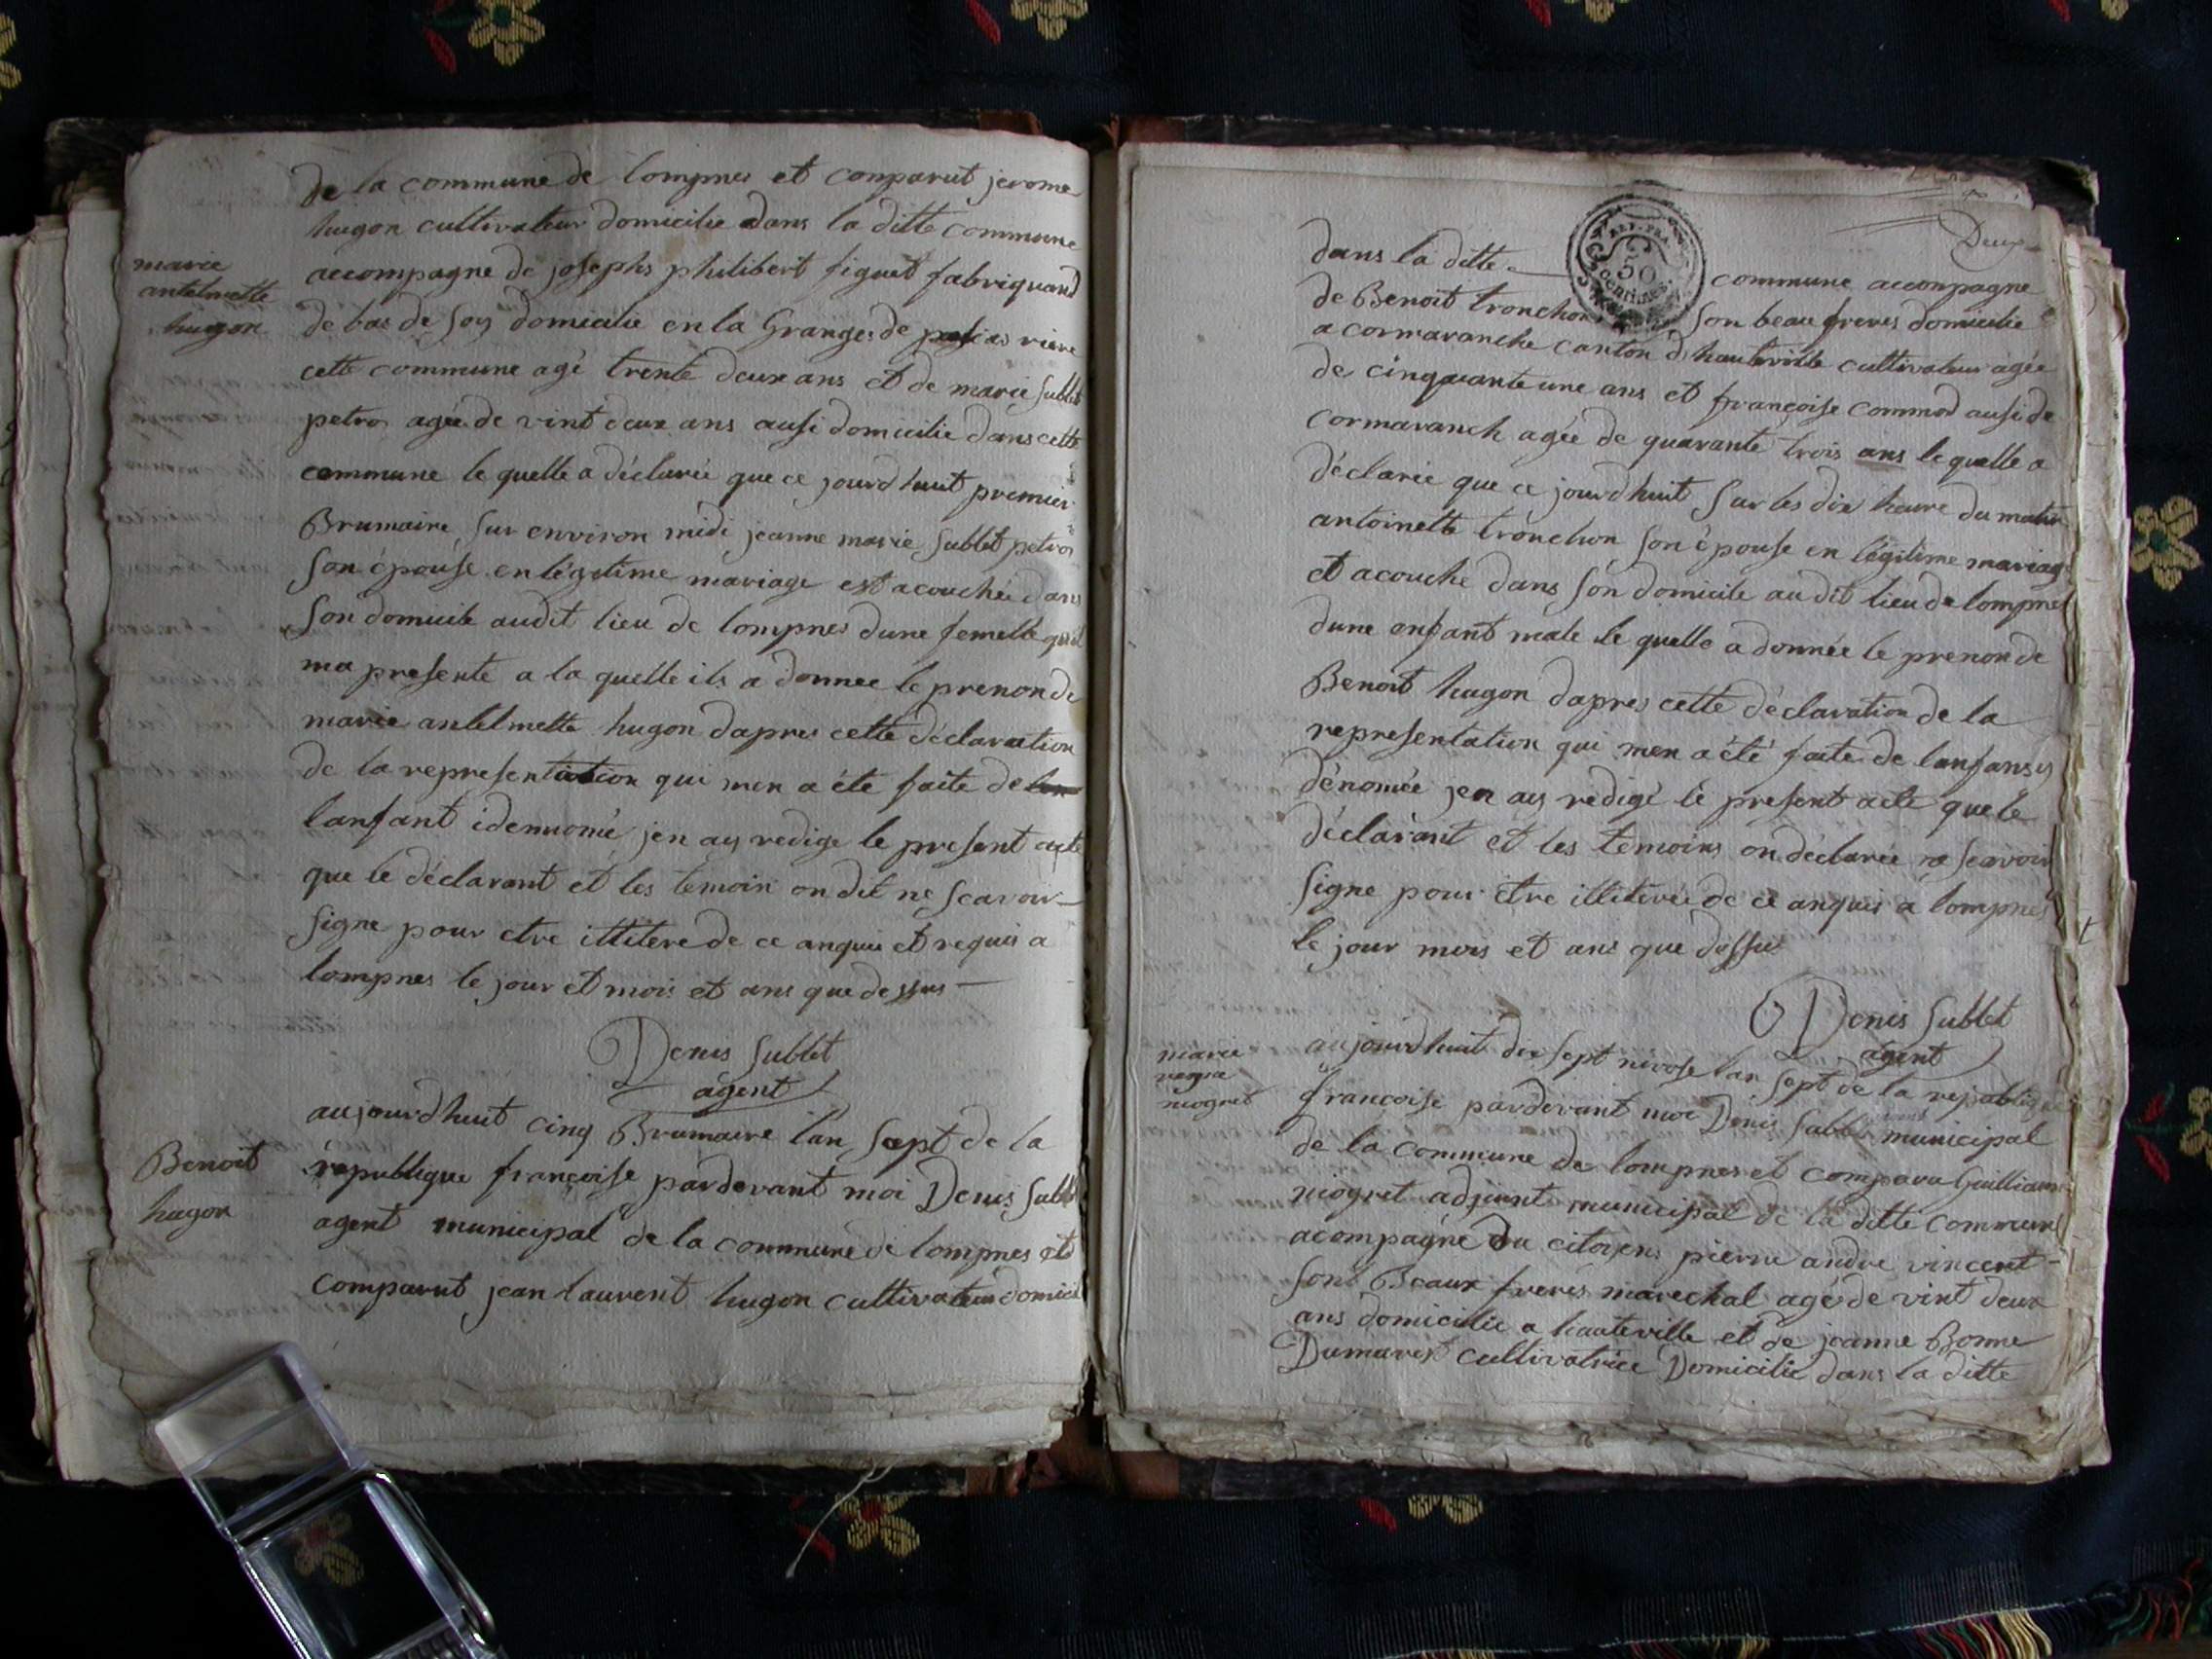 de la commune de lompnes et conparut jerome
hugon cultivateur domicilie dans la ditte commune
marie
antelmette
hugon
accompagne de josephs philibert figuet fabriquand
de bas de soy domicilie en la Granges de riere
cette commune agé trente deux ans et de marie sublet
petros agée de vint deux ans ausi domicilie dans cette
commune le quelle a déclarée que ce jourdhuit premier
Brumaire sur environ midi jeanne marie sublet petros
son épouse en légitime mariage est acouchée dans
son domicile audit lieu de lompnes dune femelle quil
ma presente a la quelle ils a donnee le prenon de
marie antelmette hugon dapres cette déclaration
de la representiation qui men a éte faite de
lanfant idennomé jen ay redige le present acte
que le déclarant et les temoin on dit ne scavoir
signe pour etre illitere de ce anquis et requis a
lompnes le jour et mois et ans que dessus
Denis Sublet
agent
aujourdhuit cinq Brumaire l'an sept de la
Benoit
hugon
republique françoise pardevant moi Denis Sublet
agent municipal de la commune de lompnes et
comparut jean laurent hugon cultivateur domicil
Deux
REP. FRA.
50
Centimes
dans la ditte commune accompagne
de Benoit tronchon son beau freres domicilie
a cormaranche canton d hauteville cultivateur agée
de cinquante une ans et françoise commod ausi de
cormaranch agée de quarante trois ans le quelle a
déclarée que ce jourdhuit sur les dix heure du matin
antoinette tronchon son épouse en légitime mariag
et acouche dans son domicile au dit lieu de lompnes
dune anfant male le quelle a donnée le prenon de
Benoit hugon dapres cette déclaration de la
representation qui men a été faite de lanfansy
dénomée jen ay redigé le present acte que le
déclarant et les temoins on déclarée ne scavoir
signe pour être illiterée de ce anquis a lompnes
le jour mois et ans que dessus
Denis Sublet
agent
marie
niogret
aujourdhuit dix sept nivose lan sept de la republique
françoise pardevant moi Denis Sublet municipal
de la commune de lompnes et comparu Guilliaume
niogret adjoint municipal de la ditte commune
acompagné du citoyens pierre andre vincent
sont Beaux freres marechal agé de vint deux
ans domicilie a hauteville et de jeanne Bonne
Dumarest cultivatrice Domicilié dans la ditte